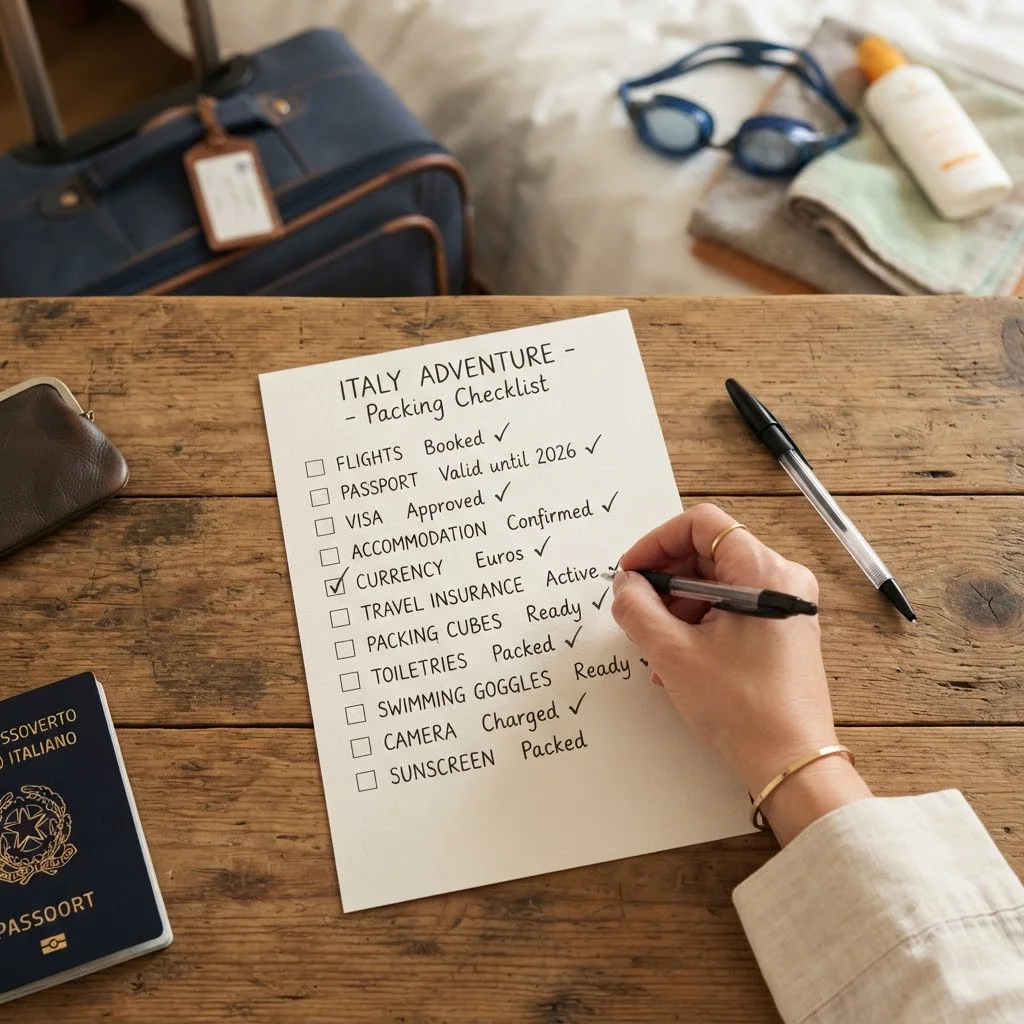 ITALY ADVENTURE –
– Packing Checklist
☐ FLIGHTS Booked ✓
☐ PASSPORT Valid until 2026 ✓
☐ VISA Approved ✓
☐ ACCOMMODATION Confirmed ✓
☑ CURRENCY Euros ✓
☐ TRAVEL INSURANCE Active ✓
☐ PACKING CUBES Ready ✓
☐ TOILETRIES Packed ✓
☐ SWIMMING GOGGLES Ready ✓
☐ CAMERA Charged ✓
☐ SUNSCREEN Packed
SSOVERTO
O ITALIANO
PASSOORT